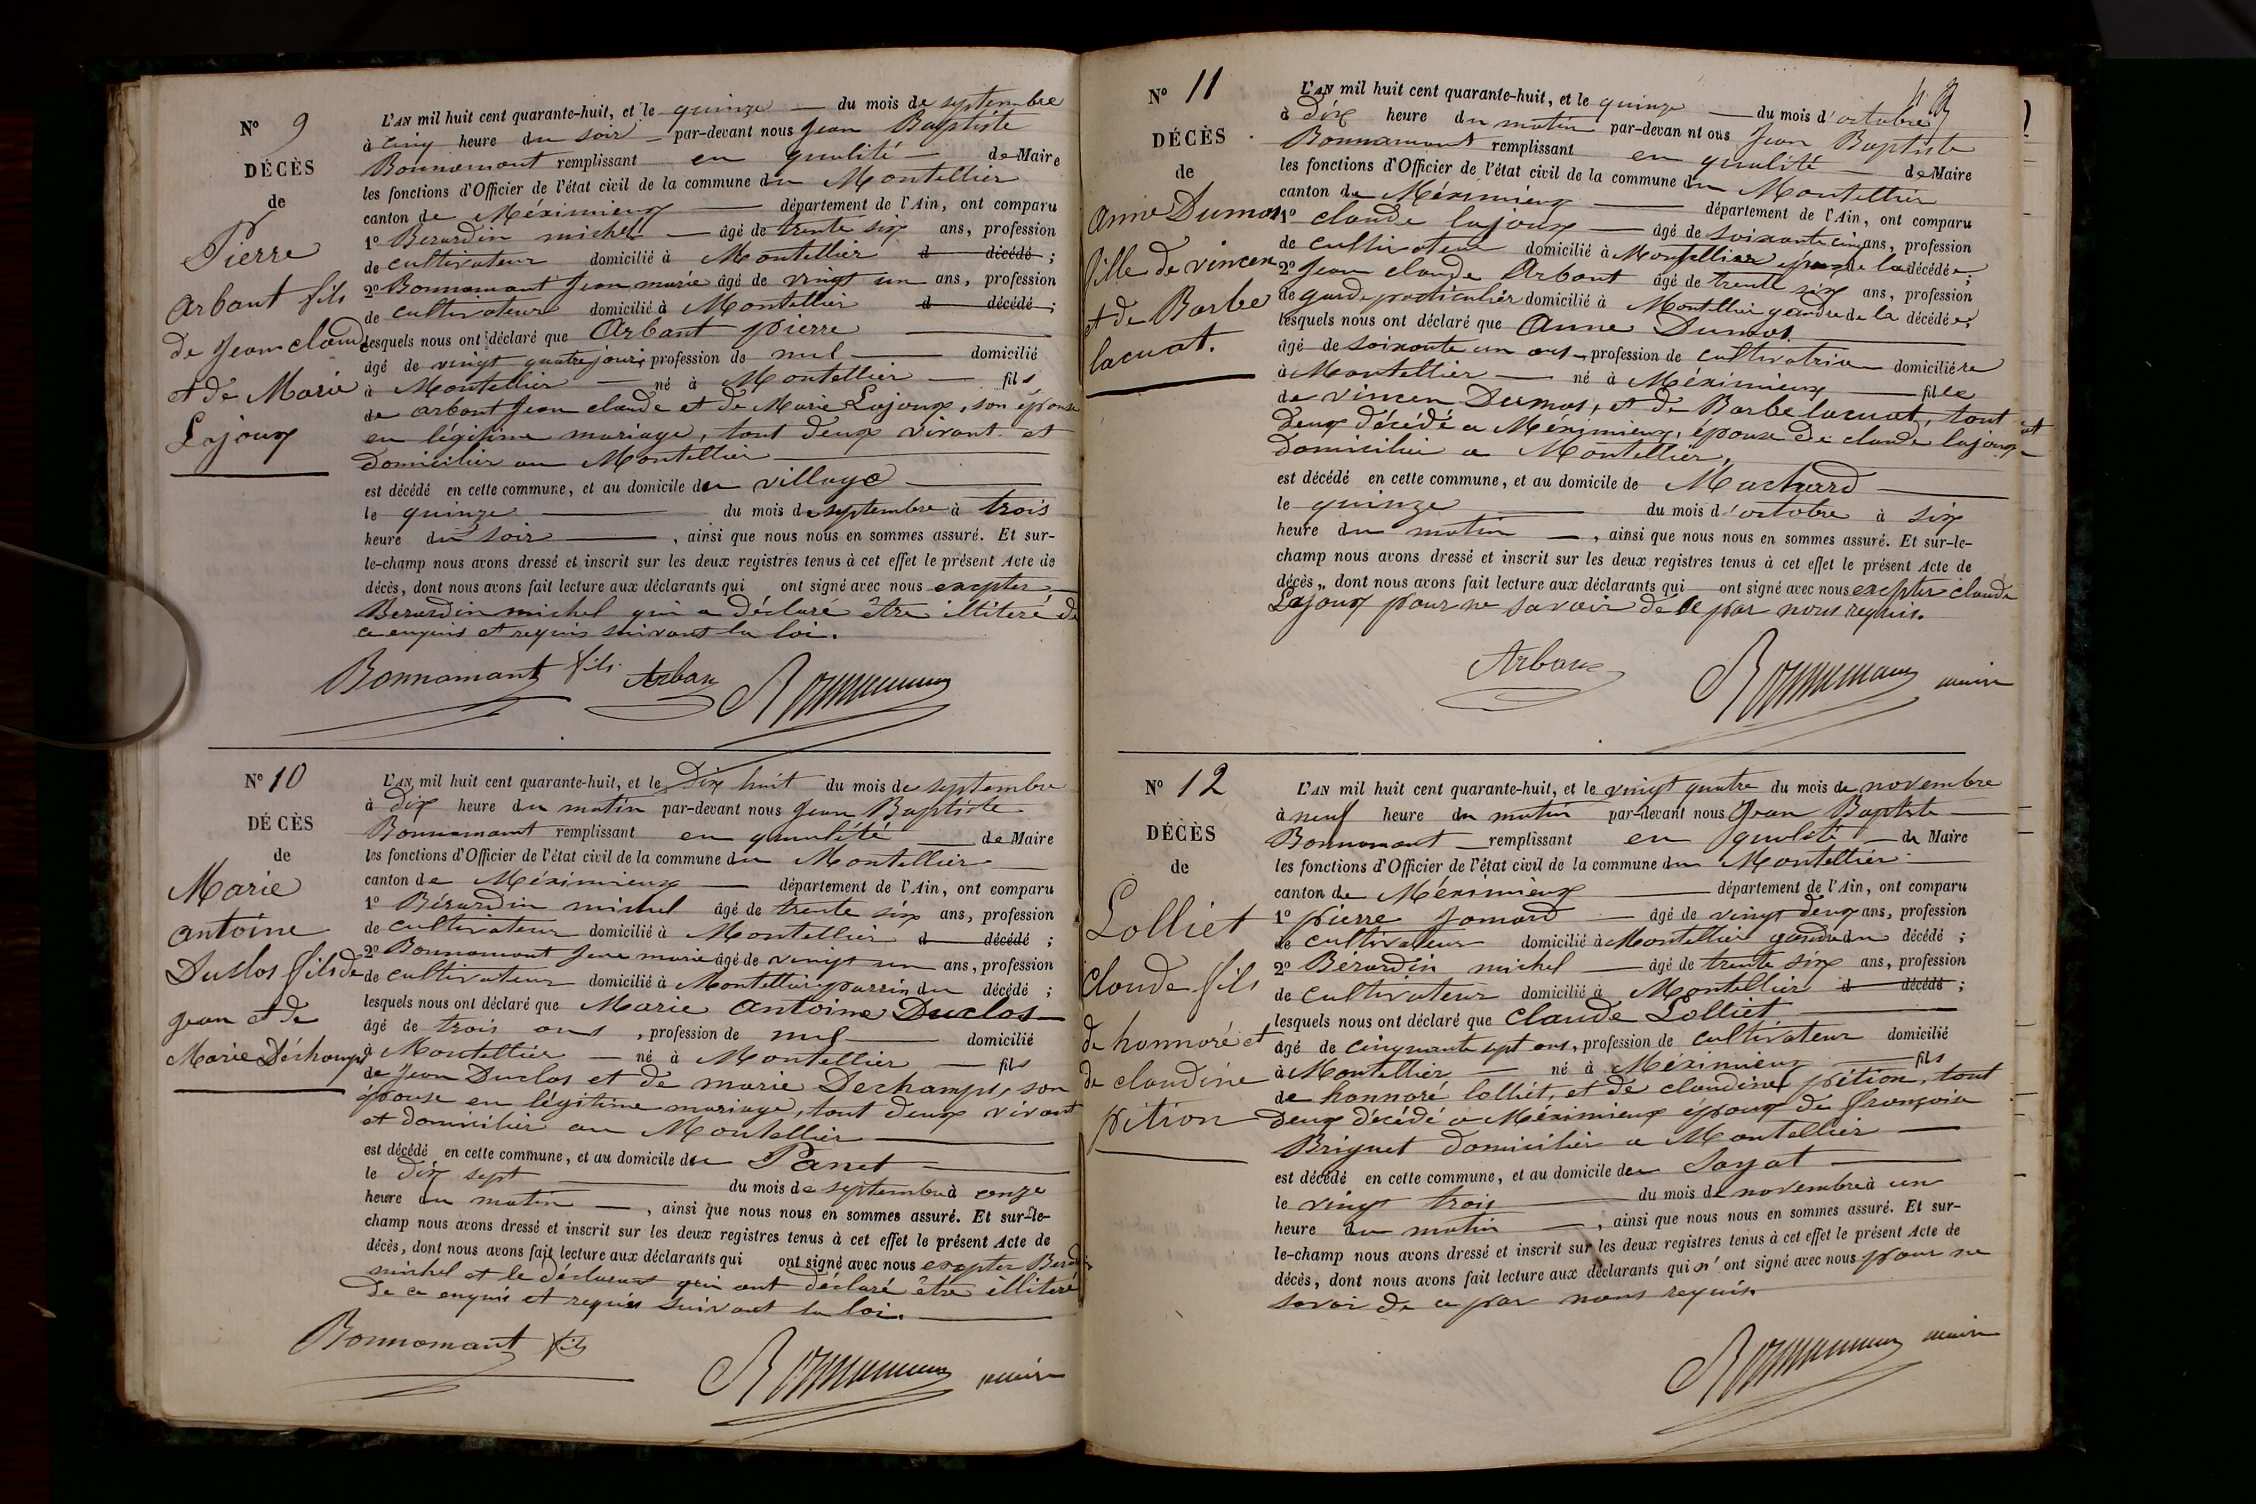 N° 9
DÉCÈS
de
Pierre
Arbant fils
de Jean claude
et de Marie
Lajoux
L'AN mil huit cent quarante-huit, et le quinze du mois de septembre
à cinq heure du soir par-devant nous Jean Baptiste
Bonnamant remplissant en qualité de Maire
les fonctions d'Officier de l'état civil de la commune du Montellier
canton de Méximieux département de l'Ain, ont comparu
1° Berardin michel âgé de trente six ans, profession
de cultivateur domicilié à Montellier d décédé ;
2° Bonnamant Jean marie âgé de vingt un ans, profession
de cultivateur domicilié à Montellier d décédé ;
lesquels nous ont déclaré que Arbant pierre
âgé de vingt quatre jours, profession de nul domicilié
à Montellier né à Montellier fils
de arbant Jean claude et de Marie Lajoux, son épouse
en légitime mariage, tout deux vivant et
domicilier au Montellier
est décédé en cette commune, et au domicile du village
le quinze du mois de septembre à trois
heure du soir , ainsi que nous nous en sommes assuré. Et sur-
le-champ nous avons dressé et inscrit sur les deux registres tenus à cet effet le présent Acte de
décès, dont nous avons fait lecture aux déclarants qui ont signé avec nous excepter
Berardin michel qui a déclare être illiteré de
ce enquis et requis suivant la loi.
Bonnamant fils Arban Bonnamant
N° 10
DÉCÈS
de
Marie
antoine
Duclos fils de
jean et de
Marie Déchamps
L'AN mil huit cent quarante-huit, et le Dix huit du mois de septembre
à dix heure du matin par-devant nous Jean Baptiste
Bonnamant remplissant en qualité de Maire
les fonctions d'Officier de l'état civil de la commune du Montellier
canton de Méximieux département de l'Ain, ont comparu
1° Bérardin michel âgé de trente six ans, profession
de cultivateur domicilié à Montellier d décédé ;
2° Bonnamant Jean marie âgé de vingt un ans, profession
de cultivateur domicilié à Montellier parrin du décédé ;
lesquels nous ont déclaré que Marie antoine Duclos
âgé de trois ans , profession de nul domicilié
à Montellier né à Montellier fils
de Jean Duclos et de marie Dechamps, son
épouse en légitime mariage, tout deux vivant
et domicilier au Montellier
est décédé en cette commune, et au domicile du Panet
le dix sept du mois de septembre à onze
heure du matin , ainsi que nous nous en sommes assuré. Et sur-le-
champ nous avons dressé et inscrit sur les deux registres tenus à cet effet le présent Acte de
décès, dont nous avons fait lecture aux déclarants qui ont signé avec nous excepter Berardin
michel et le déclarant qui ont déclaré être illiteré
De ce enquis et requis suivant la loi.
Bonnamant fils Bonnamant maire
N° 11
DÉCÈS
de
Anne Dumas
fille de vincen
et de Barbe
lacuat.
L'AN mil huit cent quarante-huit, et le quinze du mois d'octobre
à dix heure du matin par-devan nt ous Jean Baptiste
Bonnamant remplissant en qualité de Maire
les fonctions d'Officier de l'état civil de la commune du Montellier
canton de Méximieux département de l'Ain, ont comparu
1° claude lajoux âgé de soixante cinq ans, profession
de cultivateur domicilié à Montellier époux de la décédée ;
2° Jean claude Arbant âgé de trente six ans, profession
de garde particulier domicilié à Montellier gendre de la décédée ;
lesquels nous ont déclaré que Anne Dumas.
âgé de soixante un ans, profession de cultivatrice domiciliére
à Montellier né à Méximieux fille
de vincen Dumas, et de Barbe lacuat, tout
Deux décédé a Méximieux, épouse de claude lajoux et
domicilier a Montellier.
est décédé en cette commune, et au domicile de Machard
le quinze du mois d'octobre à six
heure du matin , ainsi que nous nous en sommes assuré. Et sur-le-
champ nous avons dressé et inscrit sur les deux registres tenus à cet effet le présent Acte de
décès,, dont nous avons fait lecture aux déclarants qui ont signé avec nous excepter claude
Lajoux pour ne savoir de ce par nous requis.
Arban Bonnamant maire
N° 12
DÉCÈS
de
Lolliet
claude fils
de honnoré et
de claudine
pition
L'AN mil huit cent quarante-huit, et le vingt quatre du mois de novembre
à neuf heure du matin par-devant nous Jean Baptiste
Bonnamant remplissant en qualité de Maire
les fonctions d'Officier de l'état civil de la commune du Montellier
canton de Méximieux département de l'Ain, ont comparu
1° pierre Jomard âgé de vingt deux ans, profession
de cultivateur domicilié à Montellier gendre du décédé ;
2° Bérardin michel âgé de trente six ans, profession
de cultivateur domicilié à Montellier d décédé ;
lesquels nous ont déclaré que claude Lolliet
âgé de cinquante sept ans, profession de cultivateur domicilié
à Montellier né à Méximieux fils
de honnoré lolliet, et de claudine pition, tout
Deux décédé a Méximieux époux de françoise
Briquet domicilier a Montellier
est décédé en cette commune, et au domicile du Sayat
le vingt trois du mois de novembre à un
heure du matin , ainsi que nous nous en sommes assuré. Et sur-
le-champ nous avons dressé et inscrit sur les deux registres tenus à cet effet le présent Acte de
décès, dont nous avons fait lecture aux déclarants qui n'ont signé avec nous pour ne
savoir de ce par nous requis.
Bonnamant maire